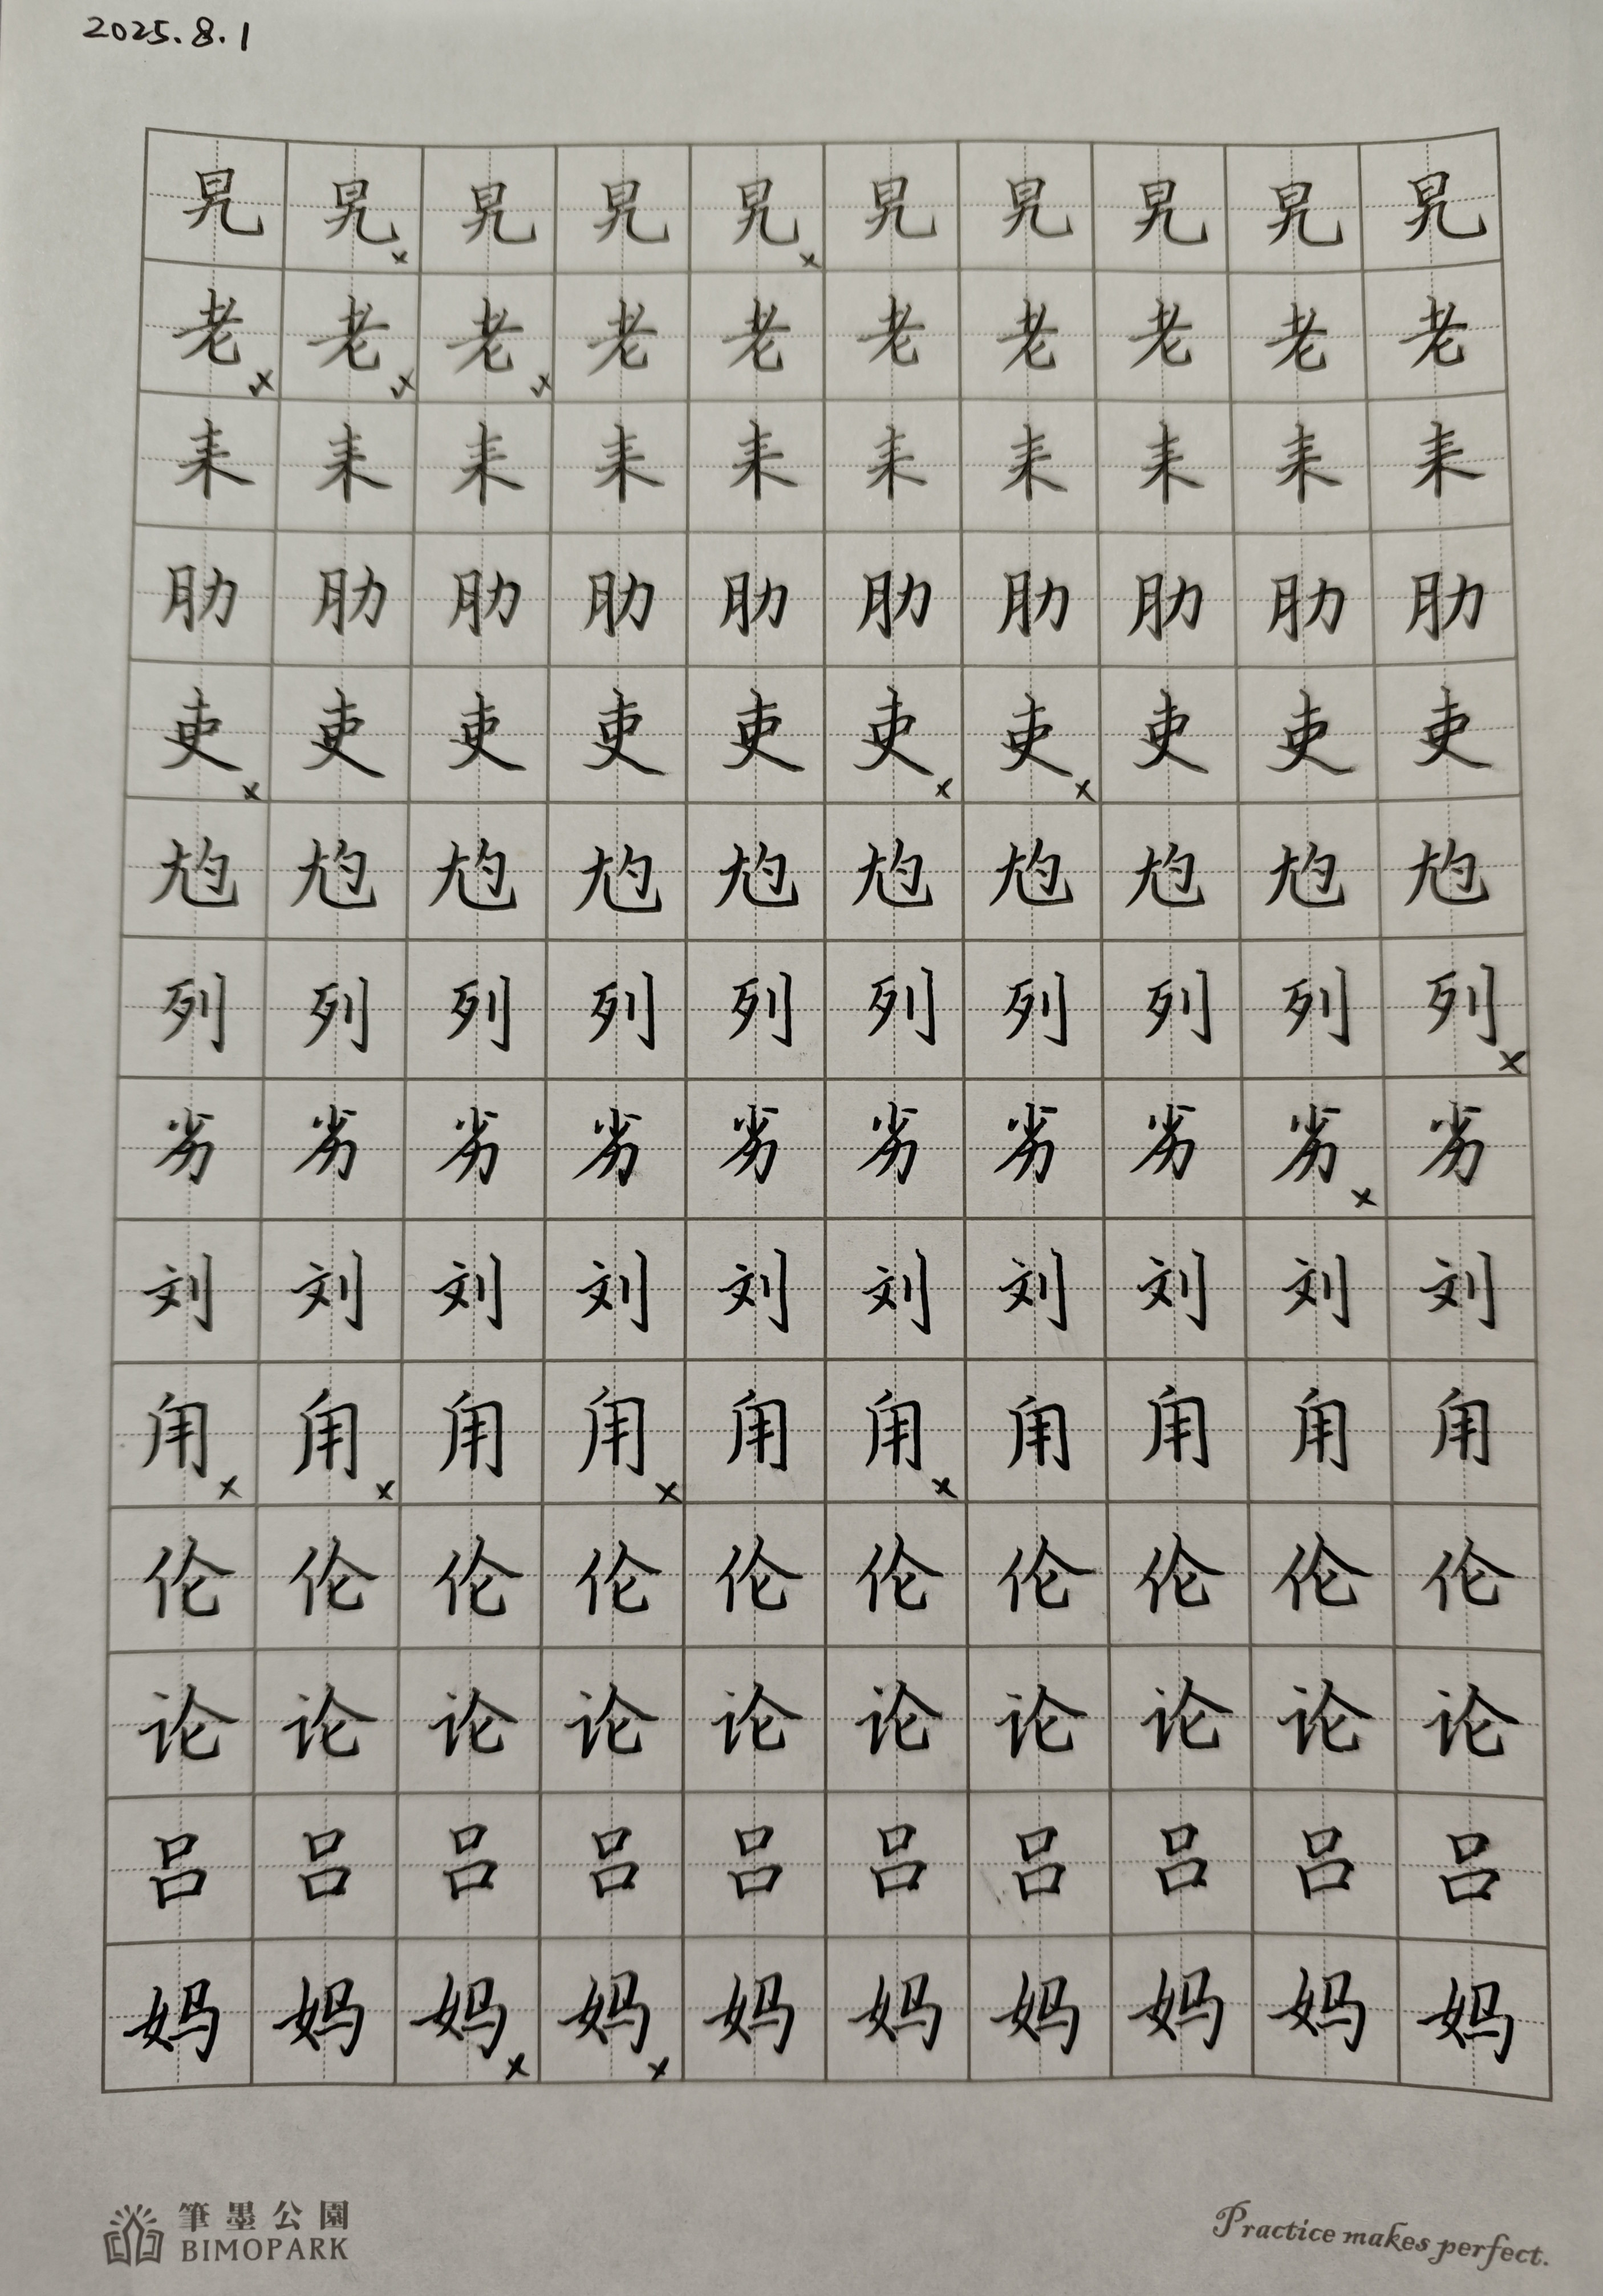 2025.8.1
旯旯旯旯旯旯旯旯旯旯
老老老老老老老老老老
耒耒耒耒耒耒耒耒耒耒
肋肋肋肋肋肋肋肋肋肋
吏吏吏吏吏吏吏吏吏吏
尥尥尥尥尥尥尥尥尥尥
列列列列列列列列列列
劣劣劣劣劣劣劣劣劣劣
刘刘刘刘刘刘刘刘刘刘
甪甪甪甪甪甪甪甪甪甪
伦伦伦伦伦伦伦伦伦伦
论论论论论论论论论论
吕吕吕吕吕吕吕吕吕吕
妈妈妈妈妈妈妈妈妈妈
筆墨公園
BIMOPARK
Practice makes perfect.